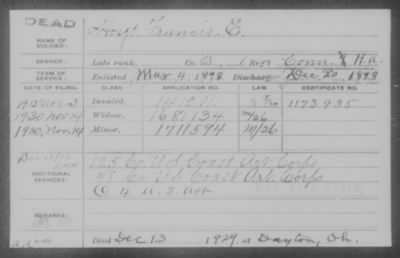 DEAD
NAME OF SOLDIER: Hoyt, Francis E.
SERVICE: Late rank, Co. B, 1 Reg't Conn. H.A.
TERM OF SERVICE: Enlisted Mar 4, 1898 Discharged Dec 20, 1898
DATE OF FILING. CLASS. APPLICATION NO. LAW CERTIFICATE NO.
Invalid, 1173935
1930 Nov 14 Widow, 1681134 m/26
1930, Nov. 14 Minor, 1711594 m/26
ADDITIONAL SERVICES:
125 Co. U S Coast Art. Corps
48 Co. U S Coast Art. Corps
4 U.S. Art
REMARKS:
Died Dec 13, 1929, at Dayton, Oh.